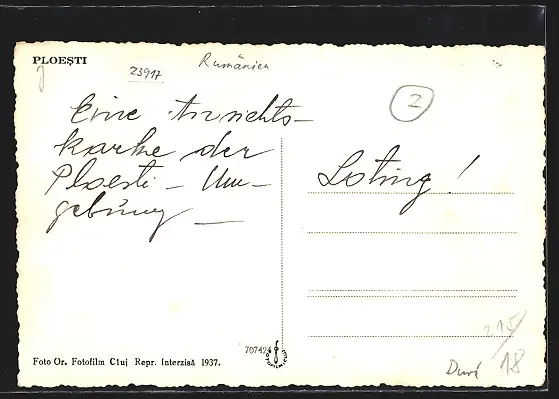 PLOEȘTI
23917
Rumänien
2
Eine Ansichts-
karte der
Ploesti – Um-
gebung –
707424
Foto Or. Fotofilm Cluj Repr. Interzisă 1937.
215
18